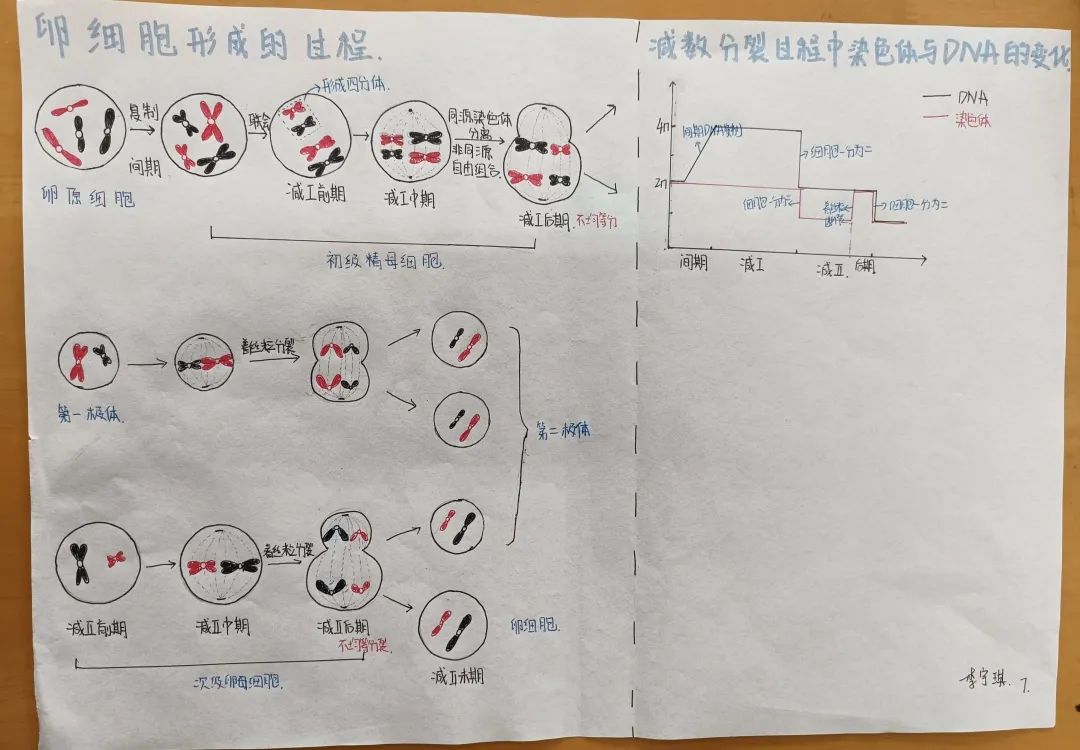 卵细胞形成的过程.
形成四分体.
复制
间期
联会
同源染色体
分离
非同源
自由组合.
卵原细胞
减I前期
减I中期
减I后期.不均等分
初级精母细胞.
着丝粒分裂
第一极体.
第二极体
着丝粒分裂
减II前期
减II中期
减II后期
不均等分裂.
卵细胞.
减II末期
次级卵母细胞.
减数分裂过程中染色体与DNA的变化.
DNA
染色体
4n
间期DNA复制
细胞一分为二
2n
细胞一分为二
着丝粒
断裂
细胞一分为二
间期
减I
减II.
后期
李宇琪. 7.